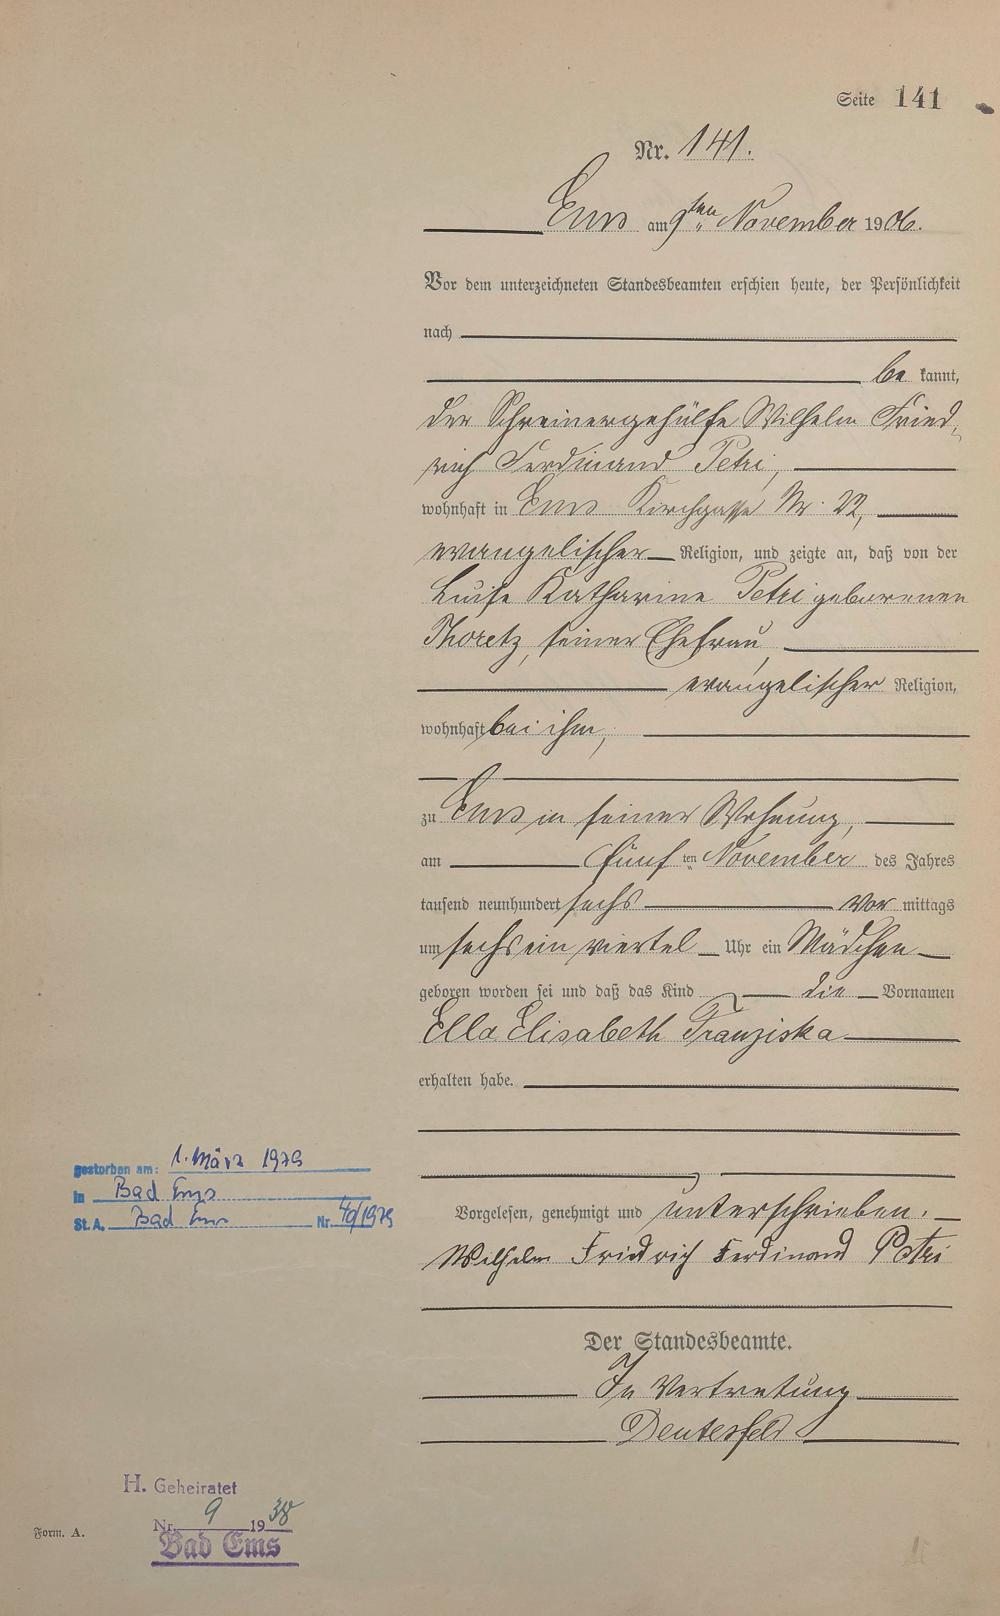 Seite 141
Nr. 141.
Ems am 9ten November 1906.
Vor dem unterzeichneten Standesbeamten erschien heute, der Persönlichkeit
nach
be kannt,
der Schreinergehülfe Wilhelm Fried-
rich Ferdinand Petri,
wohnhaft in Ems Kirchgasse Nr. 22,
evangelischer Religion, und zeigte an, daß von der
Luise Katharine Petri geborenen
Thoretz, seiner Ehefrau,
evangelischer Religion,
wohnhaft bei ihm,
zu Ems in seiner Wohnung,
am fünf ten November des Jahres
tausend neunhundert sechs vor mittags
um sechs ein viertel Uhr ein Mädchen
geboren worden sei und daß das Kind die Vornamen
Ella Elisabeth Franziska
erhalten habe.
gestorben am: 1. März 1979
in Bad Ems
St. A. Bad Ems Nr. 40/1979
Vorgelesen, genehmigt und unterschrieben.
Wilhelm Friedrich Ferdinand Petri
Der Standesbeamte.
In Vertretung
Deutesfeld
H. Geheiratet
Nr. 9 1938
Bad Ems
Form. A.